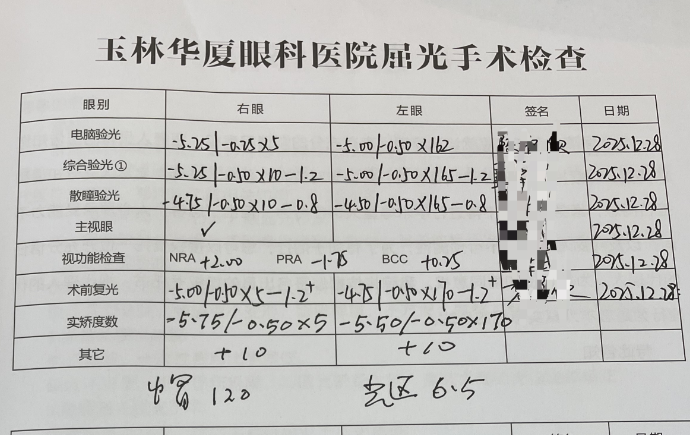 玉林华厦眼科医院屈光手术检查
眼别 右眼 左眼 签名 日期
电脑验光 -5.25/-0.75×5 -5.00/-0.50×162 2025.12.28
综合验光① -5.25/-0.50×10-1.2 -5.00/-0.50×165-1.2 2025.12.28
散瞳验光 -4.75/-0.50×10-0.8 -4.50/-0.50×165-0.8 2025.12.28
主视眼 ✓ 2025.12.28
视功能检查 NRA +2.00 PRA -1.75 BCC +0.25 2025.12.28
术前复光 -5.00/-0.50×5-1.2⁺ -4.75/-0.50×170-1.2⁺ 2025.12.28
实矫度数 -5.75/-0.50×5 -5.50/-0.50×170
其它 +10 +10
帽 120 光区 6.5